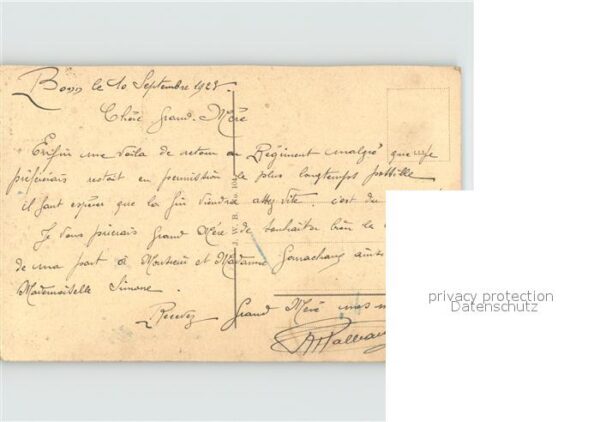 Bonn le 10 Septembre 192
Chère Grand-Mère
Enfin me voila de retour au Régiment malgré que je
préfèrais restait en permission le plus longtemps possible
il faut espérer que la fin viendra assez vite. c'est du
Je vous prierais Grand Mère de souhaiter bien le
de ma part à Monsieur et Madame
Mademoiselle Simone.
Recevez Grand Mère mes
privacy protection
Datenschutz